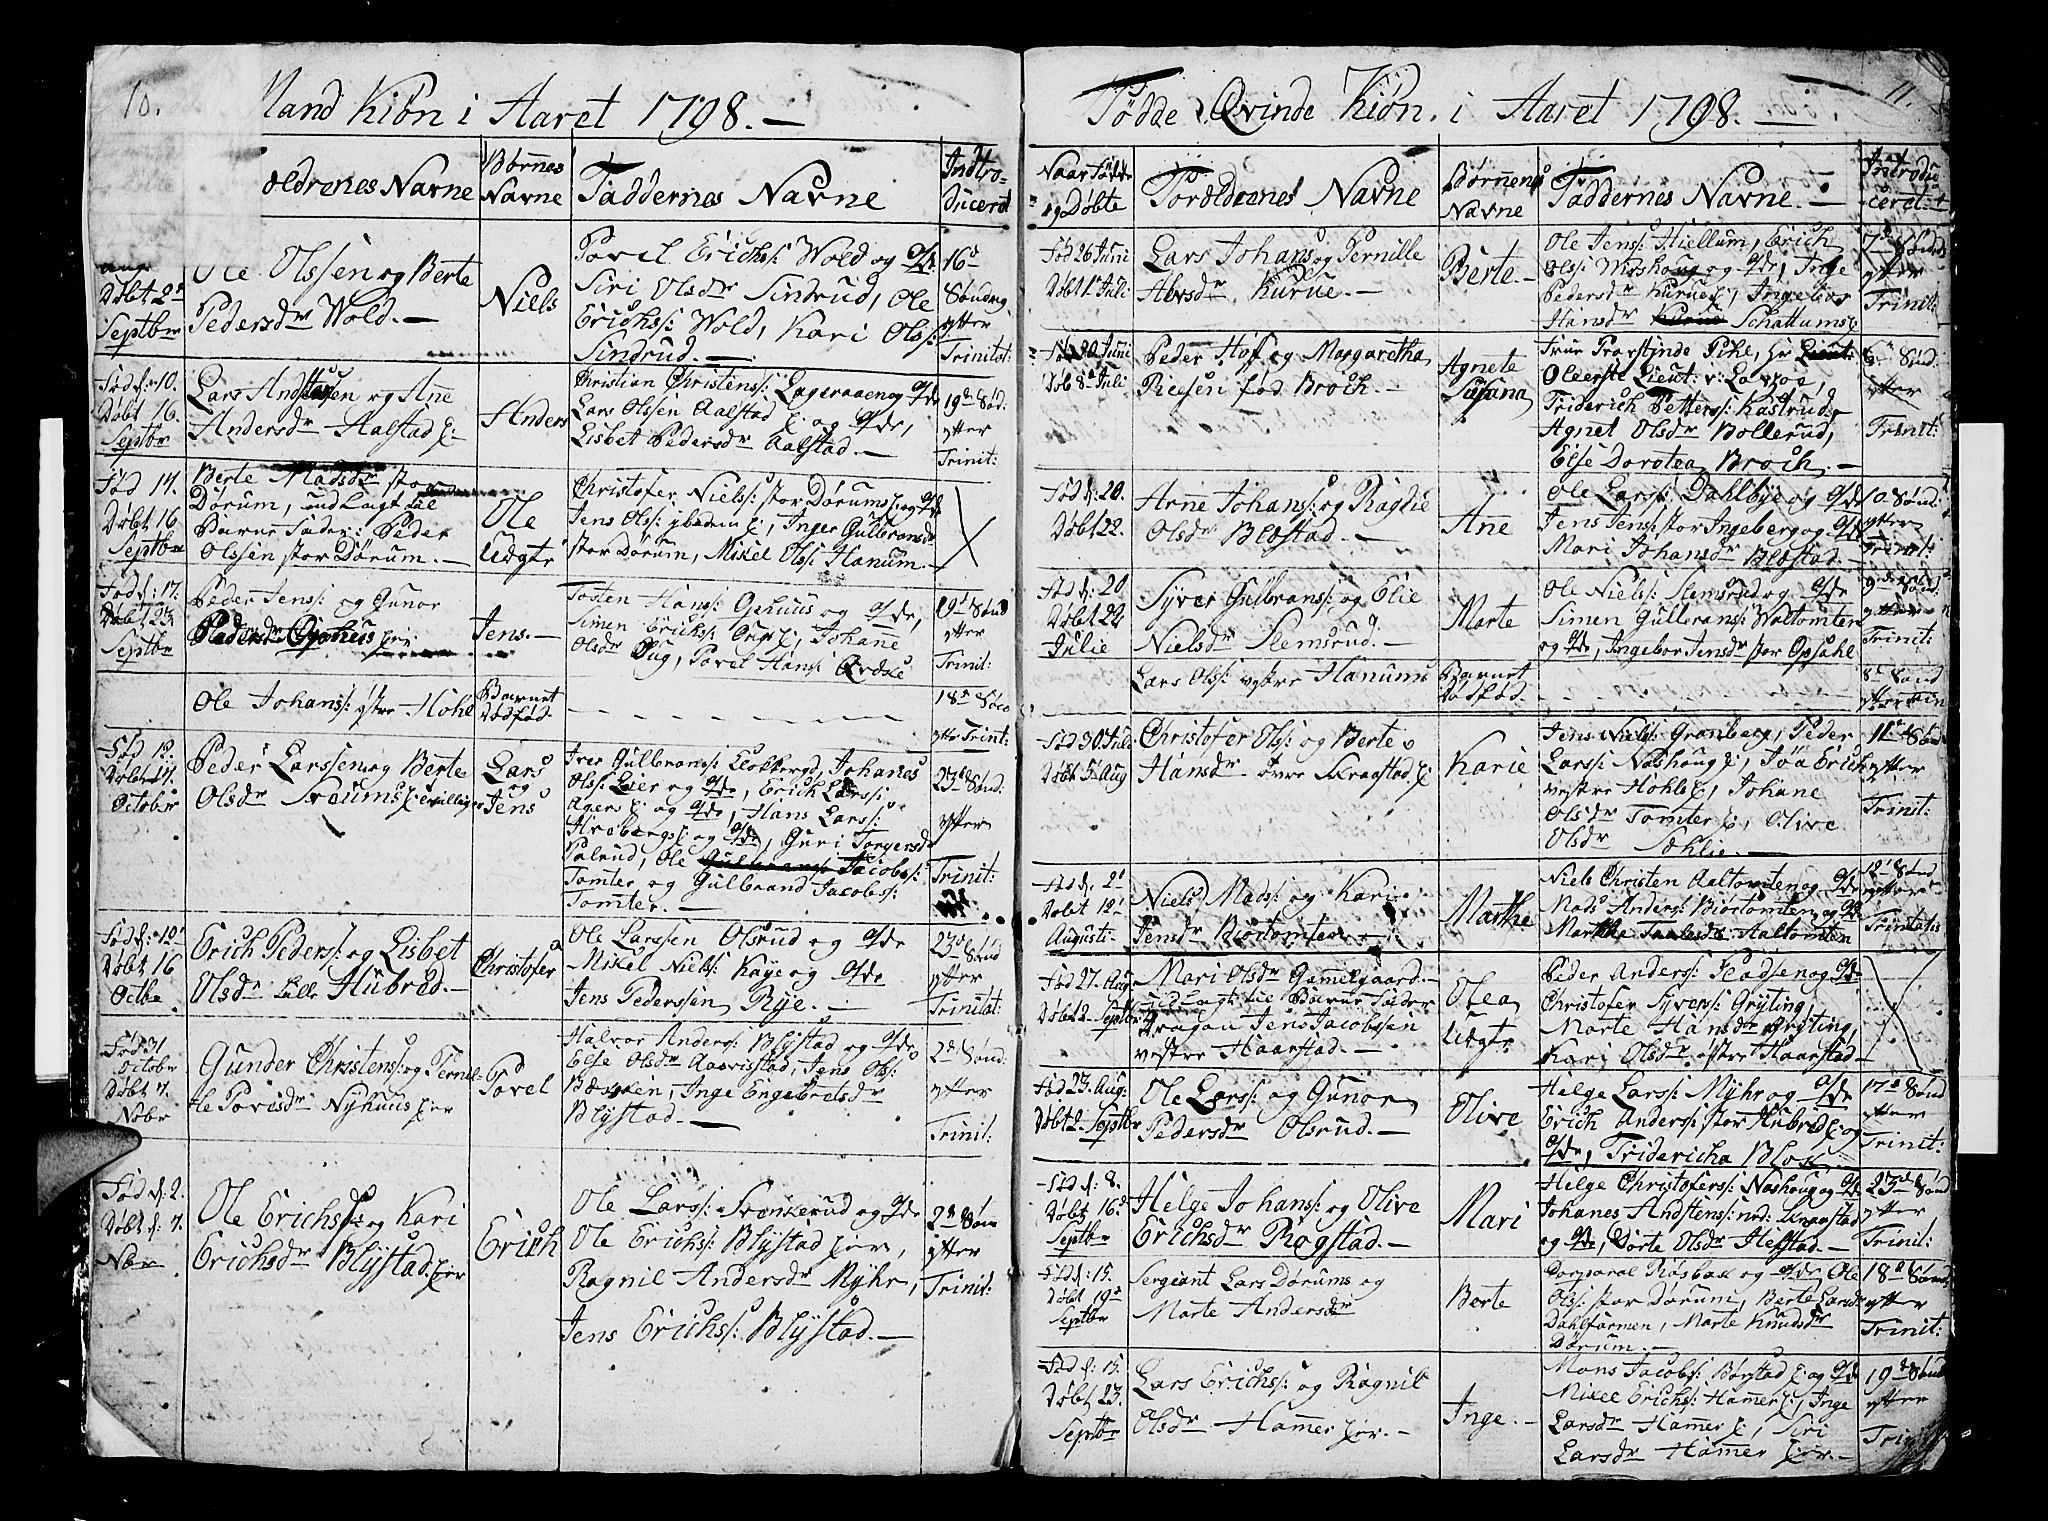 10.
Mand Kiön i Aaret 1798. —
oeldrenes Navne
Börnes Navne
Faddernes Navne
Introduceret
Döbt 2d Septbr
Ole Olssen og Berte
Pedersdr Wold. —
Niels
Povel Erichs: Wold og
Siri Olsdr Sindrud, Ole
Erichs: Wold, Kari Ols:
Sindrud. —
16d
Söndag
efter
Trinitat:
Föd d: 10.
Döbt 16.
Septbr
Lars Andstensen og Ane
Andersdr Aalstad
Anders
Christian Christens: Lageraaen og
Lars Olssen Aalstad og
Lisbet Pedersdr Aalstad. —
19d Sönd:
efter
Trinit:
Föd 14.
Döbt 16
Septbr
Berte Madsdr stor
Dörum, udlagt til
Barne Fader: Peder
Olssen stor Dörum. —
Ole
uægte
Christofer Niels: stor Dörum og
Jens Ols: ibidem, Inger Gulbransdr
stor Dörum, Mikel Ols: Hanum. —
Föd d: 17.
Döbt 23
Septbr
Peder Jens: og Gunor
Pedersdr Ophus
Jens. —
Tosten Hans: Ophuus og
Simen Erichs: Oug, Johane
Olsdr Oug, Povel Hans:
19d Sönd
efter
Trinit:
Ole Johans: östre Hohl
Barnet
Dödföd.
18d Sönd
efter Trinit:
Föd 12.
Döbt 14.
October
Peder Larssen og Berte
Olsdr
Lars
og
Jens
Iver Gulbrans: Klokberg, Johanes
Ols: Lier og Erich Lars:
Ager og Hans Lars:
og Guri Torgersdr
Palrud, Ole Gulbrans: Jacobs:
Tomter og Gulbrand Jacobs:
Tomter. —
23d Sönd:
efter
Trinit:
Föd d: 12
Döbt 16
Octbr
Erich Peders: og Lisbet
Olsdr Lille Hubred. —
Christofer
Ole Larssen Olsrud og
Mikel Niels: Kaye og
Jens Pederssen Rye. —
23d Sönd
efter
Trinitat:
Föd 31
Octobr
Döbt 7.
Nobr
Gunder Christens: og Pernil-
le Povlsdr Nyhuus
Povel
Halvor Anders: Blystad og
Else Olsdr Aarrestad, Jens Ols:
Bærven, Inge Engebretsdr
Blystad. —
2d Sönd:
efter
Trinit:
Föd d: 2.
Döbt d: 7.
Nobr
Ole Erichs: og Kari
Erichsdr Blystad
Erich
Ole Lars: Frenkerud og
Ole Erichs: Blystad
Ragnil Andersdr Myhr,
Jens Erichs: Blystad. —
2d Sön
efter
Trinit:
11.
Födde Qvinde Kiön. i Aaret 1798. —
Naar Födte
og Döbte
Forældrenes Navne
Börnenes
Navne
Faddernes Navne. —
Introdu-
ceret
Föd 26 Juni
Döbt 1 Juli
Lars Johans: og Pernille
Kurue. —
Berte —
Ole Jens: Hiellum, Erich
Ols: og Inge
Pedersdr Kurue, Ingebor
Hansdr Schattum
7d Sönd
efter
Trinit:
Föd 30 Juni
Döb 8d Juli
Peder Hof og Margaretha
född Broch. —
Agnete
Susana
Friderich Petters: Kastrud,
Agnet Olsdr Bollerud,
Else Dorotea Broch. —
Sönd:
efter
Trinit:
Föd d: 20.
Döbt 22.
Arne Johans: og Ragnil
Olsdr Blöstad. —
Ane
Ole Lars: Dahlbye og
Jens Jens: stor Ingeberg og
Mari Johansdr Blöstad. —
10 Sönd:
efter
Trinit:
Föd d: 20
Döbt 22
Julie
Syver Gulbrans: og Elie
Nielsdr Slemsrud. —
Marte
Ole Niels: Slemsrud og
Simen Gulbrans: Woltomten
og Ingebor Jensdr stor Opsahl
9d Sönd
efter
Trinit:
Lars Ols: vestre Hanum
Barnet
Dödföd.
8d Sönd
efter
Föd 30 Juli
Döbt 5 Aug
Christofer Ols: og Berte
Hansdr övre Skraastad
Karie
Jens Niels: Grønberg, Peder
Lars: Nashoug, Erich
vestre Hohl, Johane
Olsdr Tomter, Olive
Olsdr Sæhlie. —
11d Sönd
efter
Trinit:
Föd d: 2d
Döbt 12d
Augusti
Niels Mads: og Kari
Jensdr Biörtomten. —
Marthe
Niels Christen Aaltomten og
Mads Anders: Biörtomten og
Marthe Aaltomten
12d Sönd
efter
Trinitatis
Föd 27. Aug
Döbt 2. Septbr
Mari Olsdr Gammelgaard. —
udlagt til Barne Fader
Dragon Jens Jacobssen
vestre Haarstad. —
Olea
uægte
Peder Anders: og
Christofer Syvers: Gryting,
Marte Hansdr Gryting,
Kari Olsdr östre Haarstad. —
Föd 23. Aug:
Döbt 2 Septbr
Ole Lars: og Gunor
Pedersdr Olsrud. —
Olive
Helge Lars: Myhr og
Erich Anders: stor Hubred og
Fridericha Blok. —
17d Sönd
efter
Trinit:
Föd d: 8.
Döbt 16d
Septbr
Helge Johans: og Olive
Erichsdr Rogstad. —
Mari
Helge Christofers: Nashoug og
Johanes Andstens: ned: Skraastad
og Dorte Olsdr Hestad. —
23d Sönd
efter
Trinit:
Föd d: 15.
Döbt 19d
Septbr
Sergeant Lars Dörum og
Marte Andersdr
Berte
Corporal og Ole
Ols: stor Dörum, Berte Larsdr
Dahlfarmen, Marte Knudsdr
Dörum. —
18d Sönd
efter
Trinit:
Föd d: 15.
Döbt 23.
Septbr
Lars Erichs: og Ragnil
Olsdr Hamer. —
Inge. —
Mons Jacobs: Börstad og
Mikel Erichs: Hamer, Inge
Larsdr Hamer, Siri
Larsdr Hamer. —
19d Sönd
efter
Trinit: